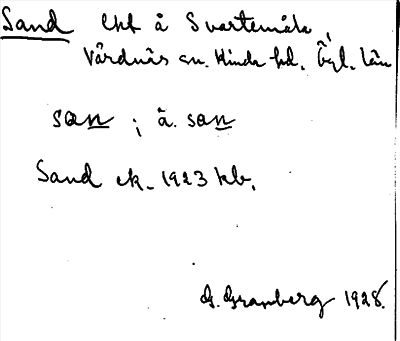 Sand lht å Svartemåla,
Vårdnäs sn. Kinda hd. Ögl. län
san ; å. san
Sand ek. 1923 kb.
G. Granberg 1928.